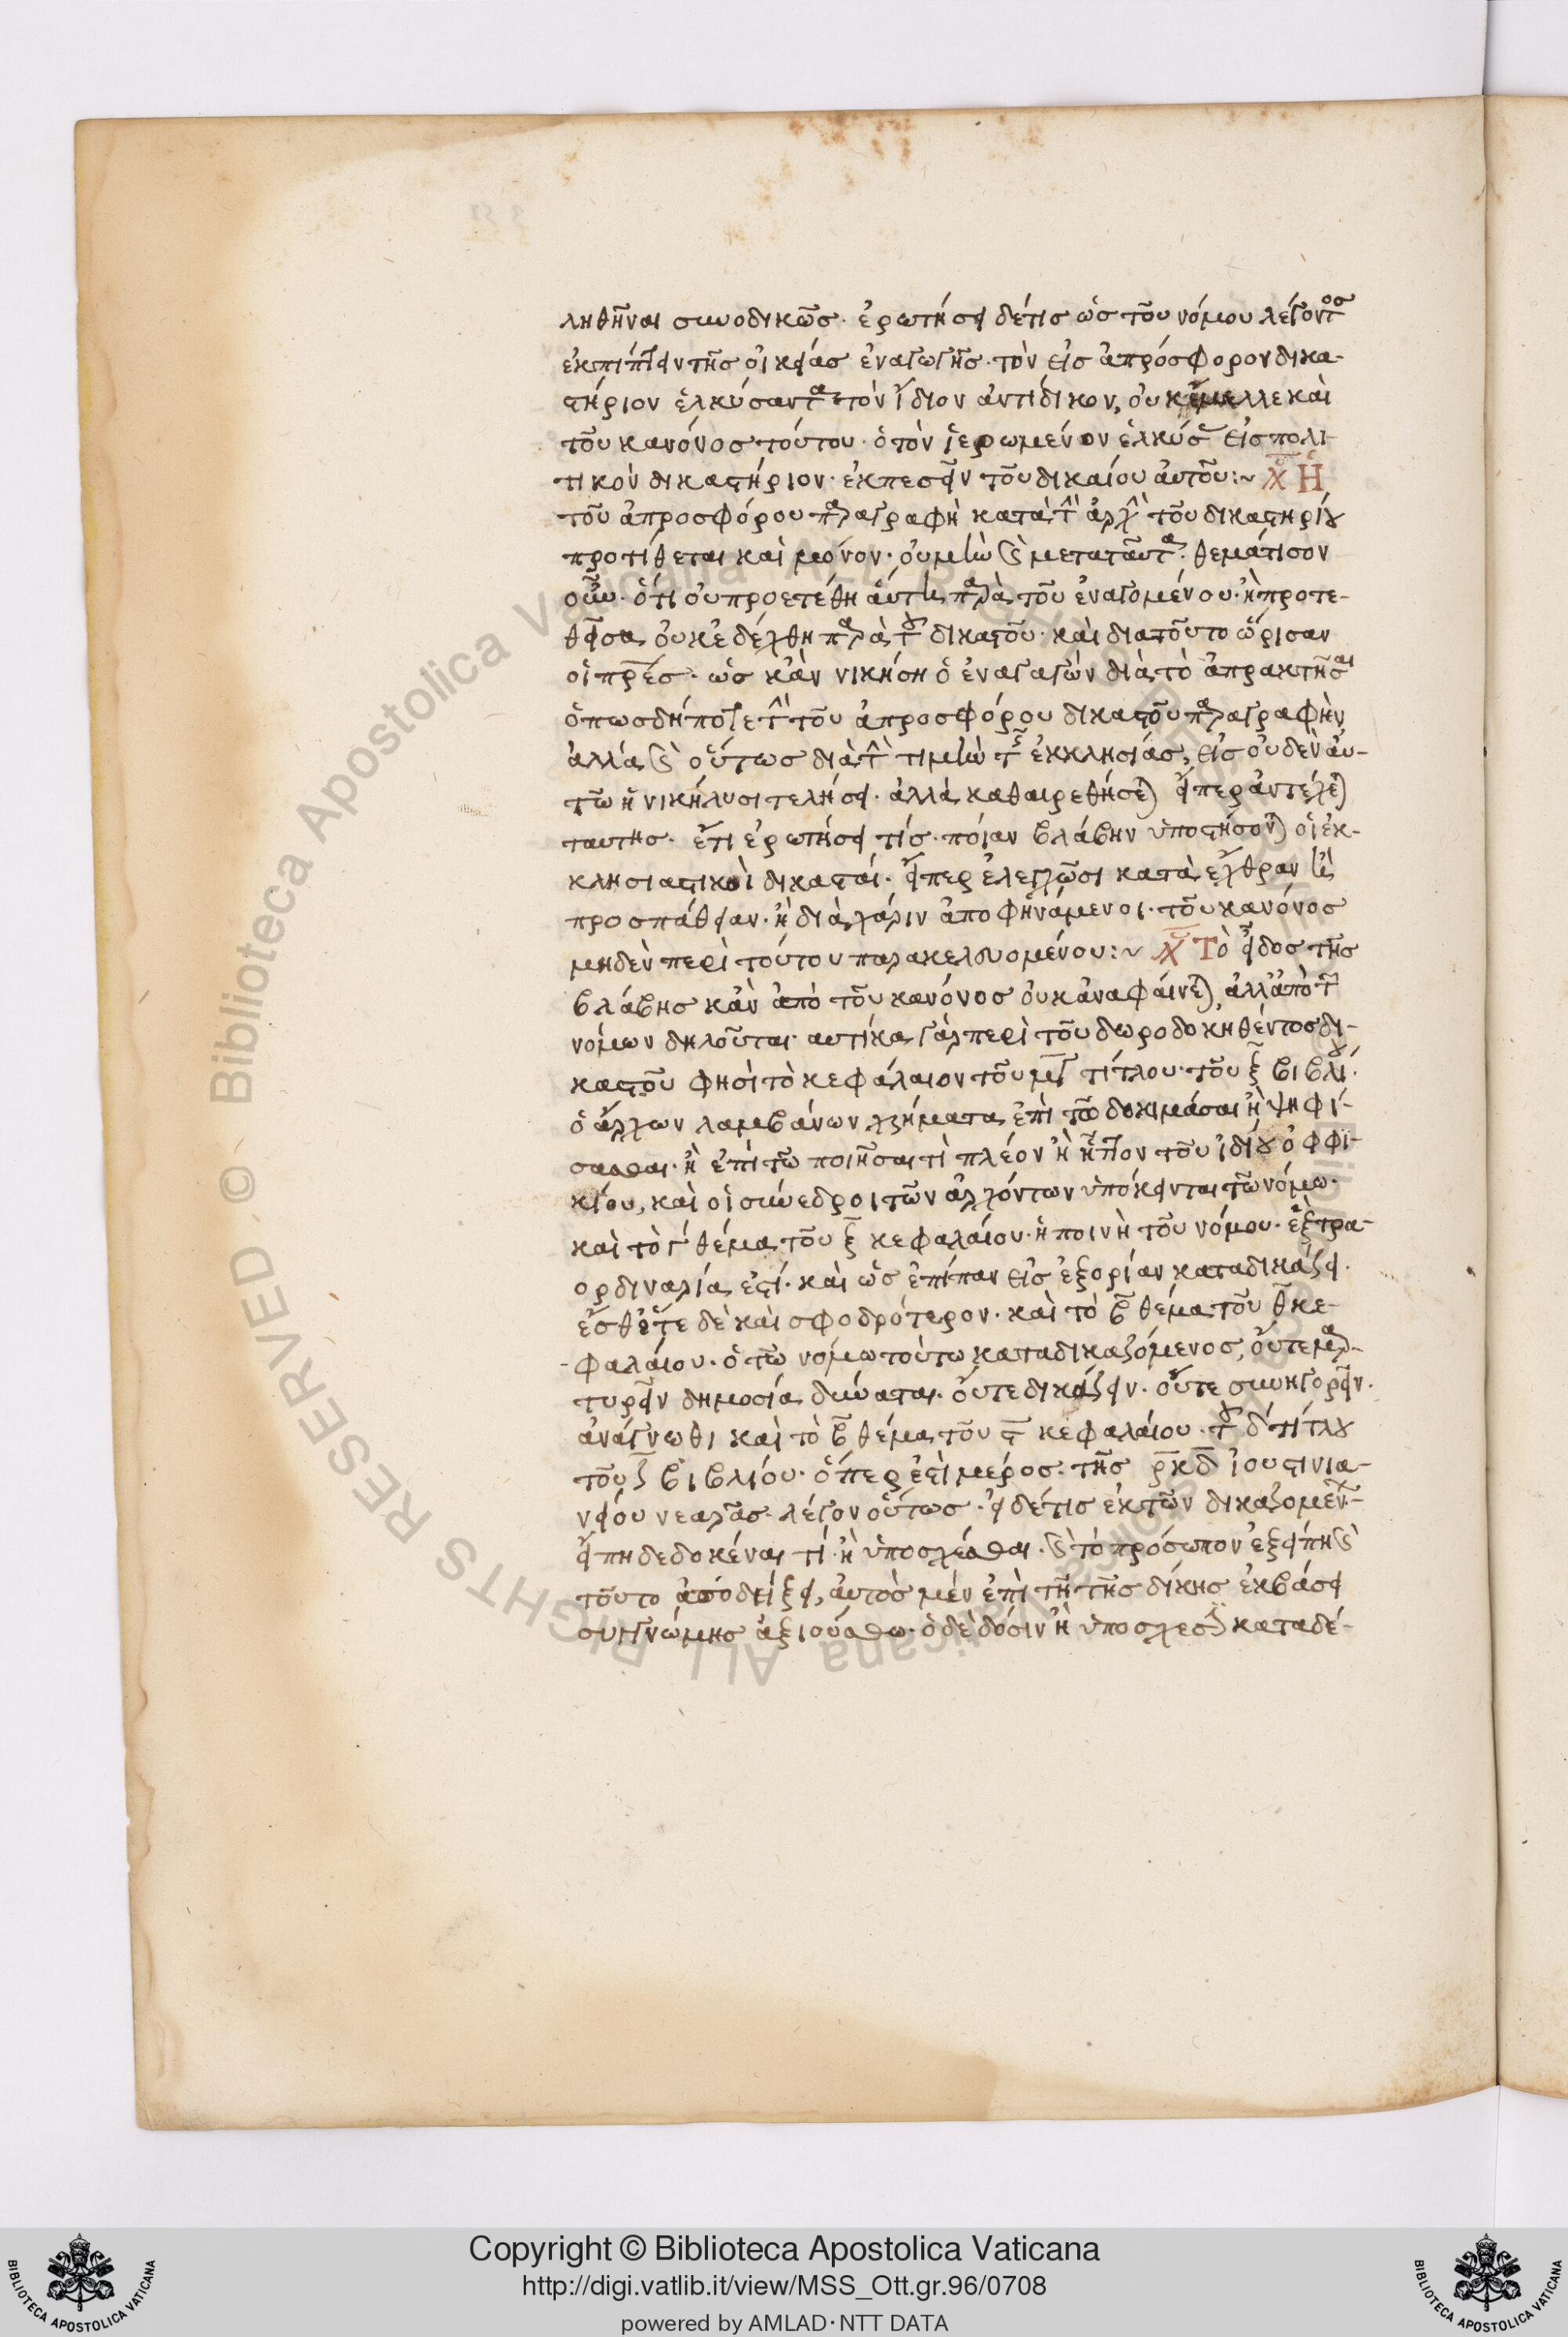 ληθῆναι συνοδικῶς· ἐρωτήσει δέ τις ὡς τοῦ νόμου λέγοντος
ἐκπίπτειν τῆς οἰκείας ἐναγωγῆς· τὸν εἰς ἀπρόσφορον δικα-
στήριον ἑλκύσαντα τὸν ἴδιον ἀντίδικον, οὐκ ἔμελλε καὶ
τοῦ κανόνος τούτου· ὁ τὸν ἱερωμένον ἑλκύσας εἰς πολι-
τικὸν δικαστήριον· ἐκπεσεῖν τοῦ δικαίου αὐτοῦ:~ Ἡ
τοῦ ἀπροσφόρου παραγραφὴ κατὰ τὴν ἀρχὴν τοῦ δικαστηρίου
προτίθεται καὶ μόνον· οὐ μὴν καὶ μετὰ ταῦτα· θεμάτισον
οὖν· ὅτι οὐ προετέθη αὕτη παρὰ τοῦ ἐναγομένου· ἢ προτε-
θεῖσα οὐκ ἐδέχθη παρὰ τοῦ δικαστοῦ· καὶ διατοῦτο ὥρισαν
οἱ πρες· ὡς κἂν νικήση ὁ ἐναγαγὼν διὰ τὸ ἀπρακτῆσαι
ὁπωσδήποτε τὴν τοῦ ἀπροσφόρου δικαστοῦ παραγραφὴν
ἀλλὰ καὶ οὕτως διὰ τὴν τιμὴν τῆς ἐκκλησίας, εἰς οὐδὲν αὐ-
τῶ ἡ νίκη λυσιτελήσει· ἀλλὰ καθαιρεθήσεται εἴπερ ἀντέχεται
ταύτης· ἔτι ἐρωτήσει τίς· ποίαν βλάβην ὑποστήσονται οἱ ἐκ-
κλησιαστικοὶ δικασταί· εἴπερ ἐλεγχῶσι κατὰ ἔχθραν ἢ
προσπάθειαν· ἢ διὰ χάριν ἀποφηνάμενοι· τοῦ κανόνος
μηδὲν περὶ τούτου παρακελευομένου:~ Τὸ εἶδος τῆς
βλάβης κἂν ἀπὸ τοῦ κανόνος οὐκ ἀναφαίνεται, ἀλλ' ἀπὸ τῶν
νόμων δηλοῦται· αυτίκα γὰρ περὶ τοῦ δωροδοκηθέντος δι-
καστοῦ φησὶ τὸ κεφάλαιον τοῦ μγ τίτλου· τοῦ ξ βιβλίου·
ὁ ἄρχων λαμβάνων χρήματα ἐπὶ τῶ δοκιμάσαι ἢ ψηφί-
σασθαι· ἢ ἐπὶ τῶ ποιῆσαι τὶ πλέον ἢ ἧττον τοῦ ἰδίου ὀφφι-
κίου, καὶ οἱ σύνεδροι τῶν ἀρχόντων ὑπόκεινται τῶ νόμω·
καὶ τὸ γ θέμα τοῦ ξ κεφαλαίου· ἡ ποινὴ τοῦ νόμου· ἐξτρα-
ορδιναρία ἐστί· καὶ ὡς ἐπίπαν εἰς ἐξορίαν καταδικάζει·
ἔσθ' ὅτε δὲ καὶ σφοδρότερον· καὶ τὸ β θέμα τοῦ θ κε-
φαλαίου· ὁ τῶ νόμω τούτω καταδικαζόμενος, οὔτε μαρ-
τυρεῖν δημοσία δύναται· οὔτε δικάζειν· οὔτε συνηγορεῖν·
ἀνάγνωθι καὶ τὸ β θέμα τοῦ ϛ κεφαλαίου· τοῦ δ τίτλου
τοῦ ζ βιβλίου· ὅπερ ἐστὶ μέρος τῆς ρκδ ἰουστινια-
νείου νεαρᾶς· λέγον οὕτως· εἰ δέ τις ἐκ τῶν δικαζομένων
εἴπη δεδοκέναι τί· ἢ ὑποσχέσθαι· καὶ τὸ πρόσωπον ἐξείπη καὶ
τοῦτο ἀποδείξει, αὐτὸς μὲν ἐπὶ τῆ τῆς δίκης ἐκβάσει
συγγνώμης ἀξιούσθω· ὁ δὲ δόσιν ἢ ὑπόσχεσιν καταδε-
Copyright © Biblioteca Apostolica Vaticana
http://digi.vatlib.it/view/MSS_Ott.gr.96/0708
powered by AMLAD·NTT DATA
BIBLIOTECA APOSTOLICA VATICANA
BIBLIOTECA APOSTOLICA VATICANA
© Biblioteca Apostolica Vaticana ALL RIGHTS RESERVED